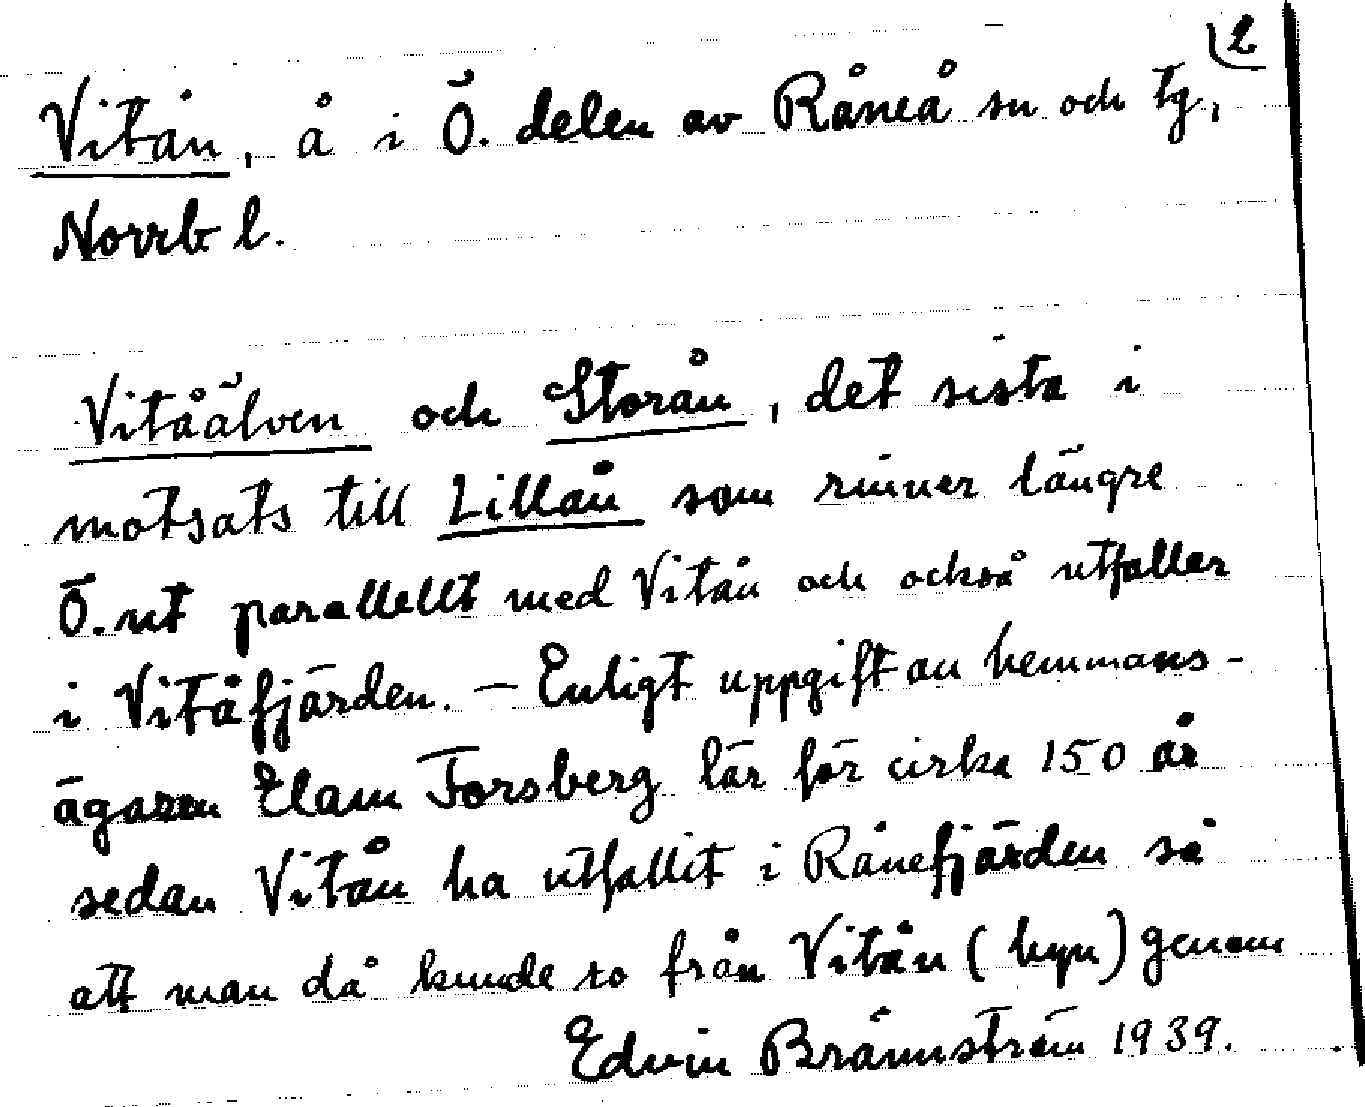 2
Vitån, å i Ö. delen av Råneå sn och tg,
Norrb. l.
Vitåälven och Storån, det sista i
motsats till Lillån som rinner längre
Ö.ut parallellt med Vitån och också utfaller
i Vitåfjärden. – Enligt uppgift av hemmans-
ägaren Elam Forsberg lär för cirka 150 år
sedan Vitån ha utfallit i Rånefjärden så
att man då kunde ro från Vitån (byn) genom
Edvin Brännström 1939.